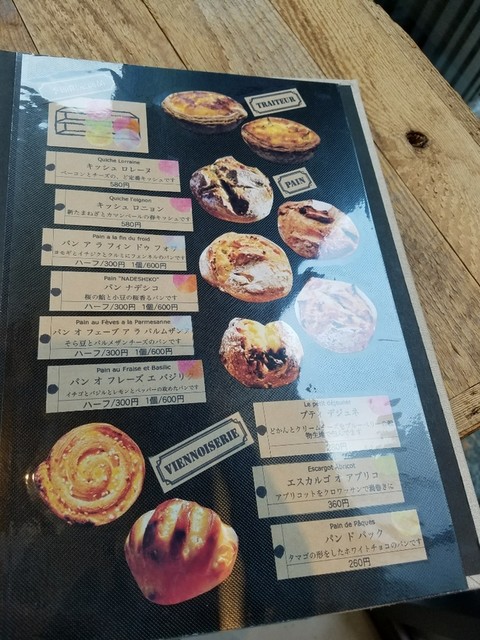 TRAITEUR
Quiche Lorraine
キッシュ ロレーヌ
ベーコンとチーズの、ど定番キッシュです
580円
Quiche l'oignon
キッシュ ロニョン
新たまねぎとカマンベールの春キッシュです
580円
PAIN
Pain a la fin du froid
パン ア ラ フィン ドゥ フォワ
ハーフ/300円 1個/600円
Pain "NADESHIKO"
パン ナデシコ
桜の餡と小豆の桜香るパンです
ハーフ/300円 1個/600円
Pain au Fèves a la Parmesanne
パン オ フェーブ ア ラ パルムザンヌ
そら豆とパルメザンチーズのパンです
ハーフ/300円 1個/600円
Pain au Fraise et Basilic
パン オ フレーズ エ バジリ
イチゴとバジルとレモンとペッパーの攻めたパンです
ハーフ/300円 1個/600円
VIENNOISERIE
プティ デジュネ
Escargot Abricot
エスカルゴ オ アブリコ
アプリコットをクロワッサンで渦巻きに
360円
Pain de Pâques
パン ド パック
タマゴの形をしたホワイトチョコのパンです
260円